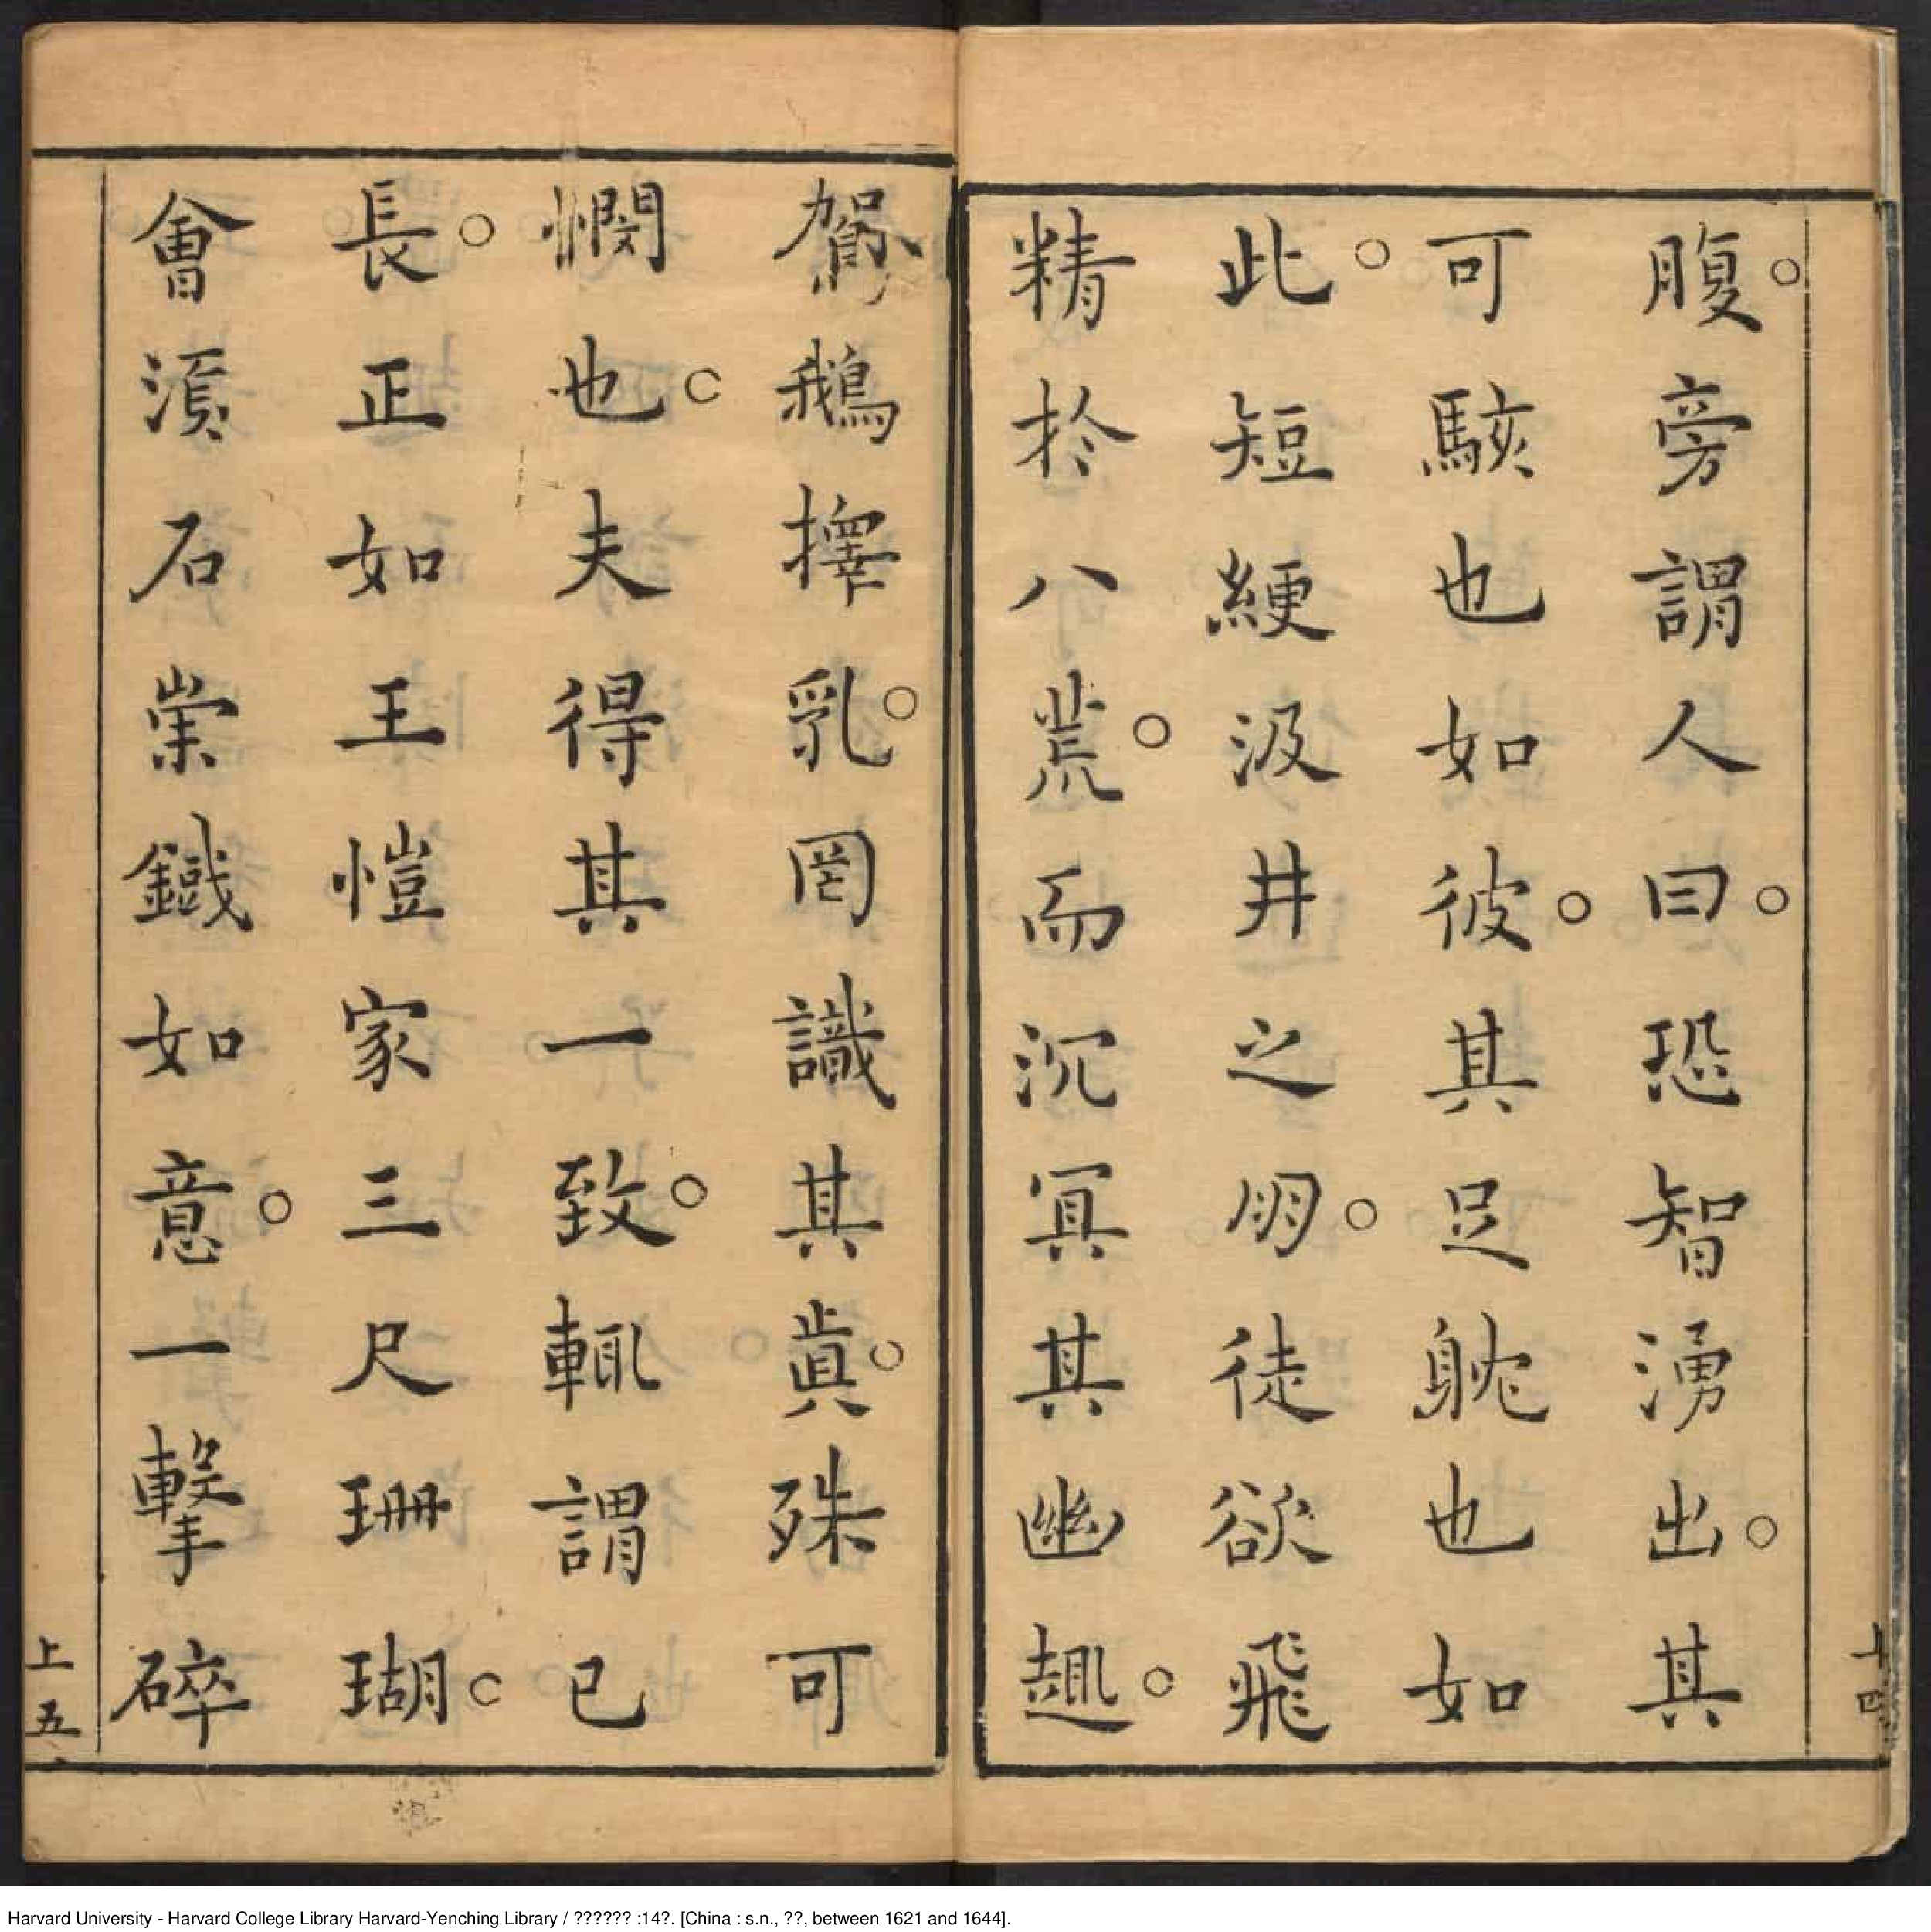 腹。旁謂人曰。恐智湧出。其
可駭也如彼。其足躭也如
此。短綆汲井之朙。徒欲飛
精於八荒。而沉冥其幽趣。
駕鵝擇乳。罔識其眞。殊可
憫也。夫得其一致。輒謂已
長。正如王愷家三尺珊瑚。
會湏石崇鐵如意。一擊碎
上四
上五
Harvard University - Harvard College Library Harvard-Yenching Library / ?????? :14?. [China : s.n., ??, between 1621 and 1644].